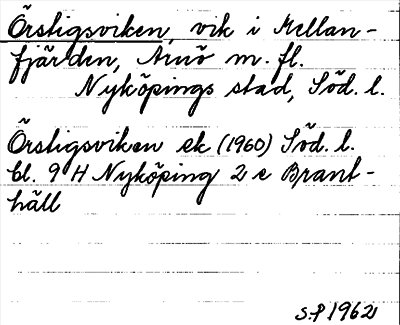 Örsligsviken, vik i Mellan-
fjärden, Arnö m. fl.
Nyköpings stad, Söd. l.
Örsligsviken ek (1960) Söd. l.
bl. 9 H Nyköping 2 e Brant-
häll
S.P 1962